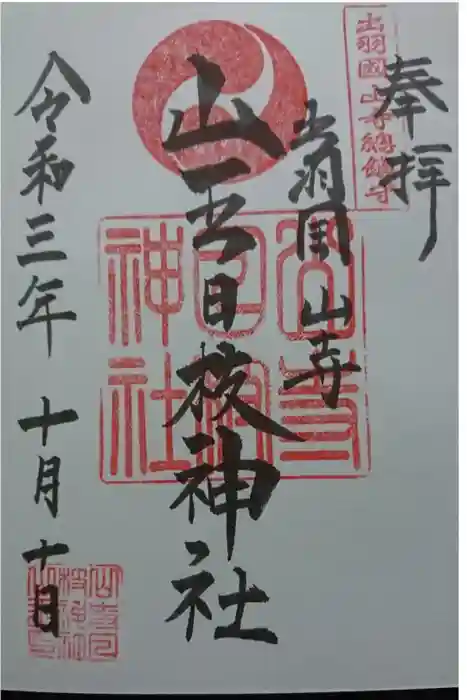 奉拝
出羽國山寺總鎮守
出羽国 山寺
山王日枝神社
山寺日枝神社
令和三年 十月十日